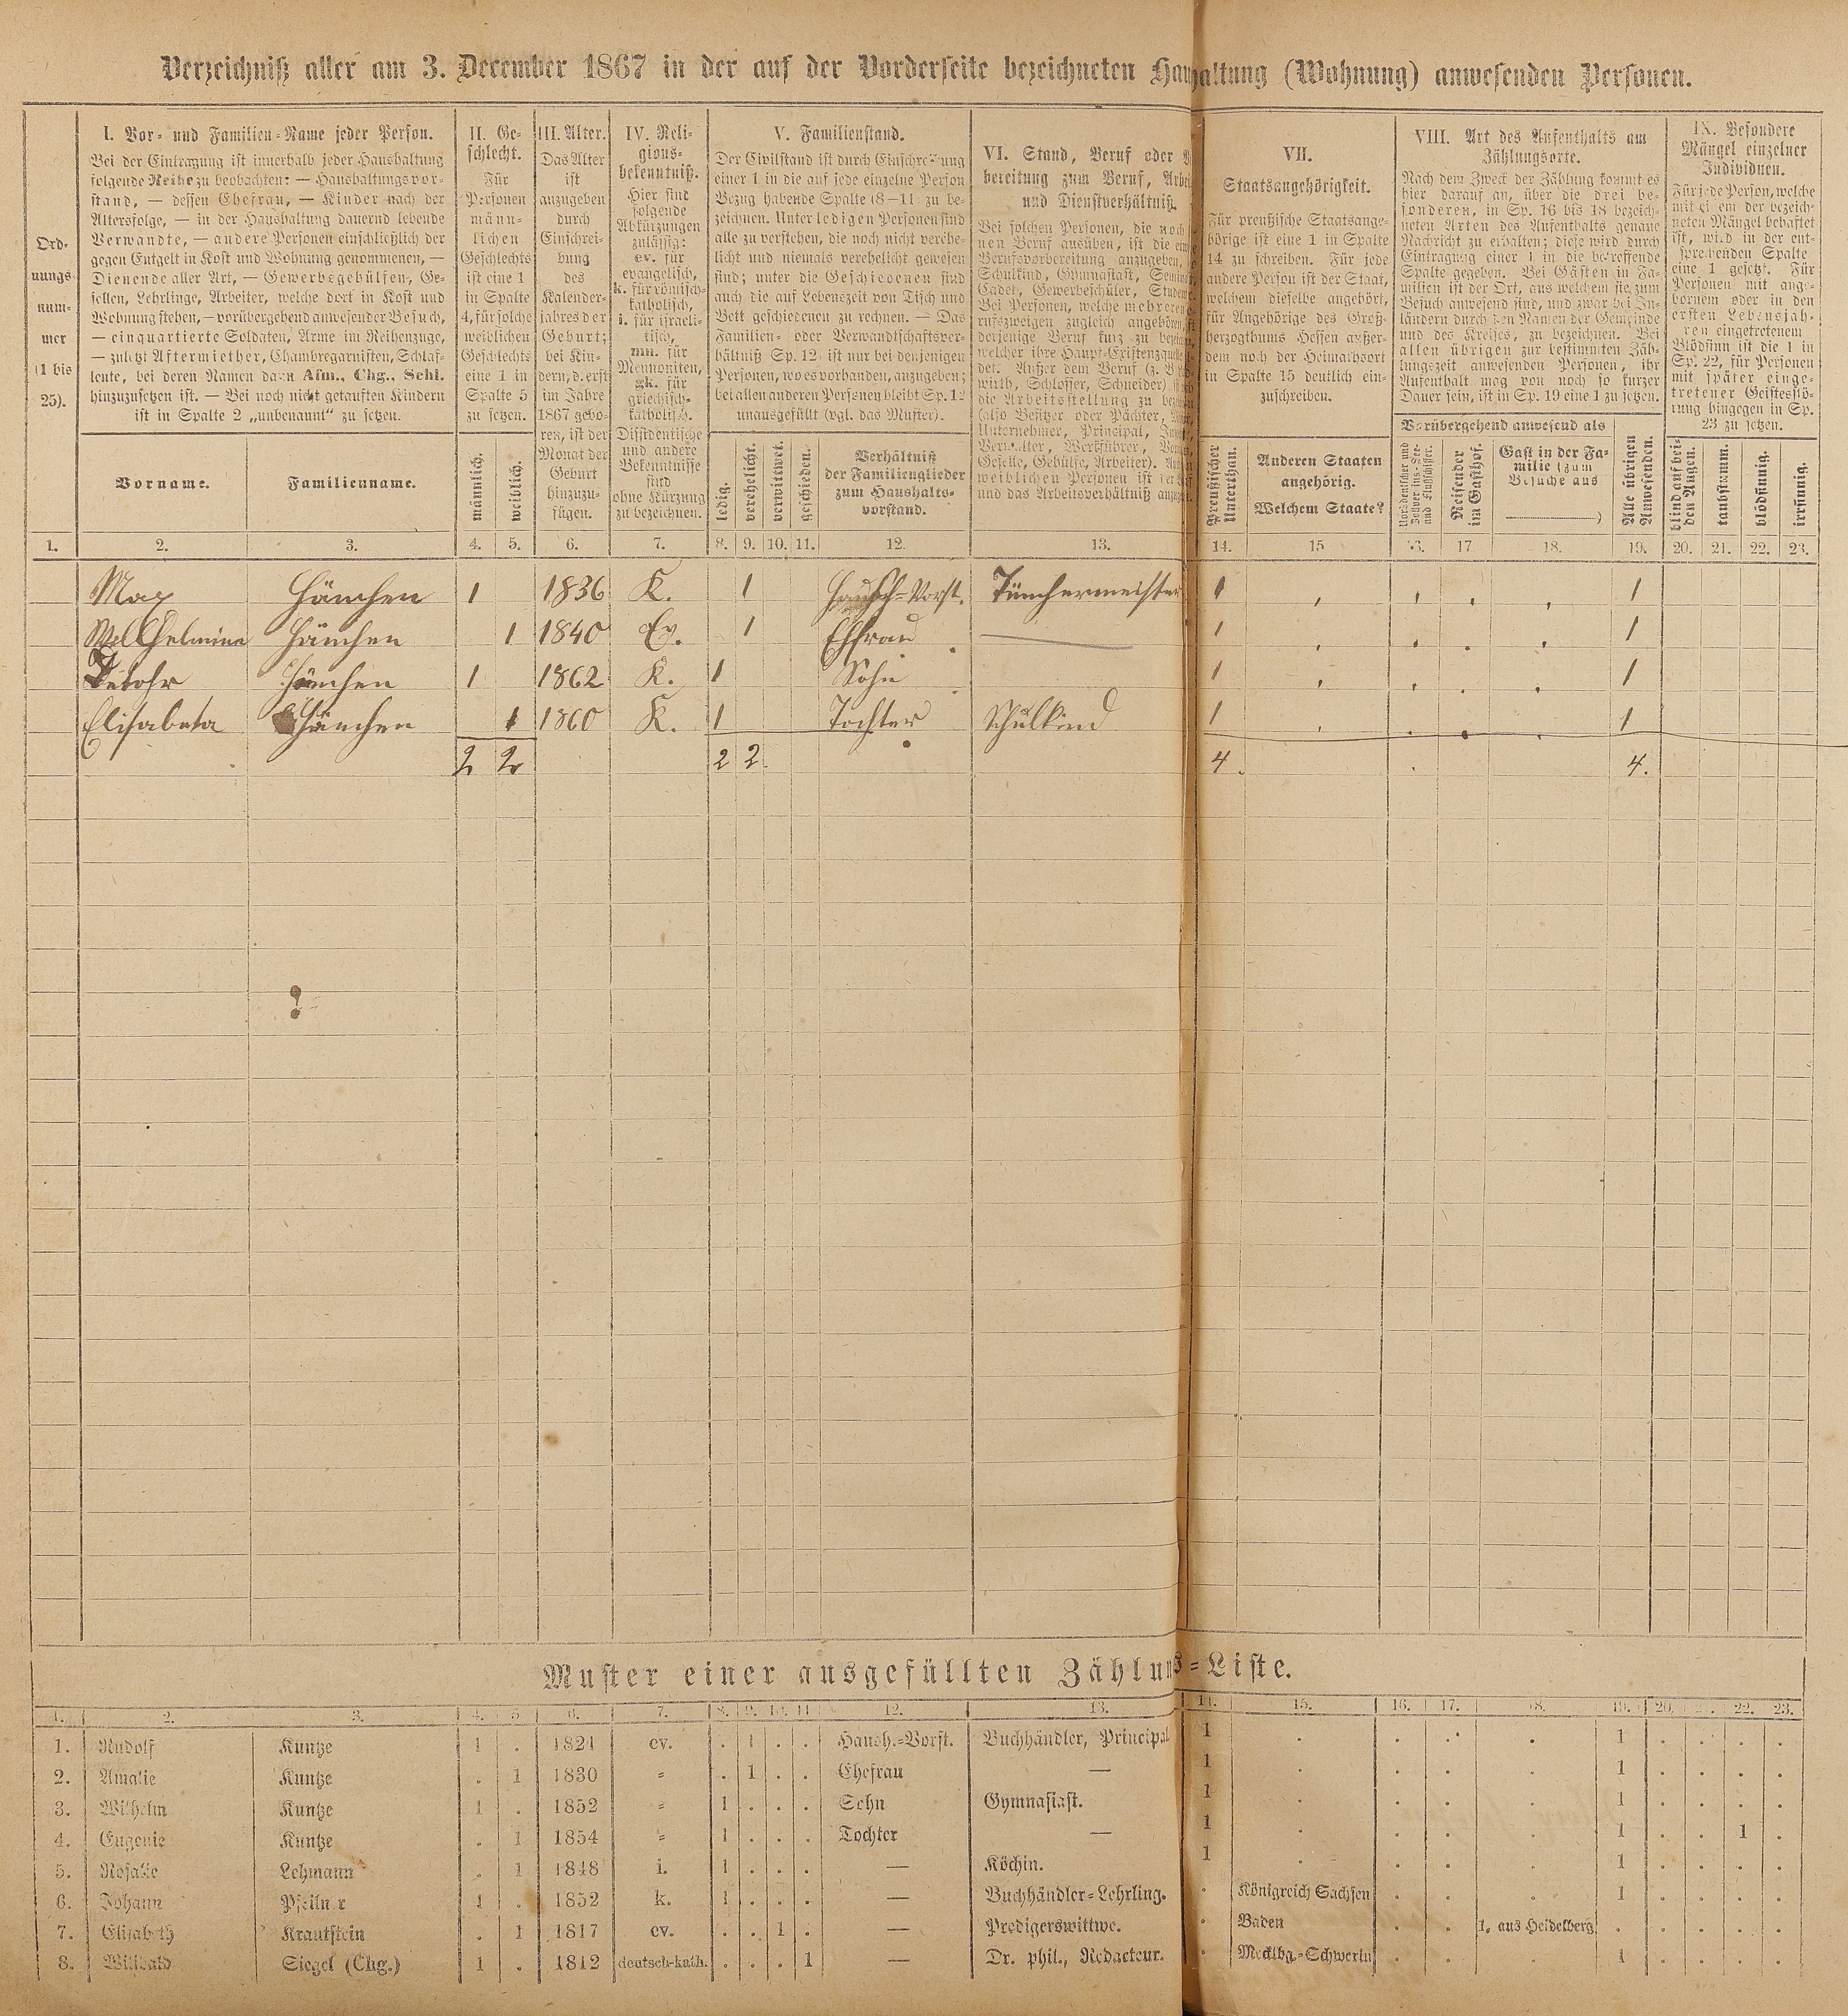 Verzeichniß aller am 3. December 1867 in der auf der Vorderseite bezeichneten Haushaltung (Wohnung) anwesenden Personen.
Ord-
nungs-
num-
mer
(1 bis
25).
I. Vor- und Familien-Name jeder Person.
Bei der Eintragung ist innerhalb jeder Haushaltung
folgende Reihe zu beobachten: — Haushaltungsvor-
stand, — dessen Ehefrau, — Kinder nach der
Altersfolge, — in der Haushaltung dauernd lebende
Verwandte, — andere Personen einschließlich der
gegen Entgelt in Kost und Wohnung genommenen, —
Dienende aller Art, — Gewerbsgehülfen, Ge-
sellen, Lehrlinge, Arbeiter, welche dort in Kost und
Wohnung stehen, — vorübergehend anwesender Besuch,
— einquartierte Soldaten, Arme im Reihenzuge,
— zuletzt Aftermiether, Chambregarnisten, Schlaf-
leute, bei deren Namen dann Afm., Chg., Schl.
hinzuzusetzen ist. — Bei noch nicht getauften Kindern
ist in Spalte 2 „unbenannt“ zu setzen.
Vorname.
Familienname.
II. Ge-
schlecht.
Für
Personen
männ-
lichen
Geschlechts
ist eine 1
in Spalte
4, für solche
weiblichen
Geschlechts
eine 1 in
Spalte 5
zu setzen.
männlich.
weiblich.
III. Alter.
Das Alter
ist
anzugeben
durch
Einschrei-
bung
des
Kalender-
jahres der
Geburt;
bei Kin-
dern, d. erst
im Jahre
1867 gebo-
ren, ist der
Monat der
Geburt
hinzuzu-
fügen.
IV. Reli-
gions-
bekenntniß.
Hier sind
folgende
Abkürzungen
zulässig:
ev. für
evangelisch,
k. für römisch-
katholisch,
i. für israeli-
tisch,
mn. für
Mennoniten,
gk. für
griechisch-
katholisch.
Dissidentische
und andere
Bekenntnisse
sind
ohne Kürzung
zu bezeichnen.
V. Familienstand.
Der Civilstand ist durch Einschreibung
einer 1 in die auf jede einzelne Person
Bezug habende Spalte (8—11) zu be-
zeichnen. Unter ledigen Personen sind
alle zu verstehen, die noch nicht verehe-
licht und niemals verehelicht gewesen
sind; unter die Geschiedenen sind
auch die auf Lebenszeit von Tisch und
Bett geschiedenen zu rechnen. — Das
Familien- oder Verwandtschaftsver-
hältniß Sp. 12 ist nur bei denjenigen
Personen, wo es vorhanden, anzugeben;
bei allen anderen Personen bleibt Sp. 12
unausgefüllt (vgl. das Muster).
ledig.
verehelicht.
verwittwet.
geschieden.
Verhältniß
der Familienglieder
zum Haushalts-
vorstand.
VI. Stand, Beruf oder
bereitung zum Beruf,
und Dienstverhältniß.
Bei solchen Personen, die noch
nen Beruf ausüben, ist die
Berufsvorbereitung anzugeben,
Schulkind, Gymnasiast,
Cadet, Gewerbeschüler,
Bei Personen, welche mehreren
rufszweigen zugleich angehören,
derjenige Beruf kurz zu
welcher ihre Haupt-Existenzquelle
det. Außer dem Beruf (z. B.
wirth, Schlosser, Schneider)
die Arbeitsstellung zu
(also Besitzer oder Pächter,
Unternehmer, Principal,
Verwalter, Werkführer,
Geselle, Gehülfe, Arbeiter).
weiblichen Personen ist
und das Arbeitsverhältniß
VII.
Staatsangehörigkeit.
Für preußische Staatsange-
hörige ist eine 1 in Spalte
14 zu schreiben. Für jede
andere Person ist der Staat,
welchem dieselbe angehört,
für Angehörige des Groß-
herzogthums Hessen außer-
dem noch der Heimathsort
in Spalte 15 deutlich ein-
zuschreiben.
Preußischer
Unterthan.
Anderen Staaten
angehörig.
Welchem Staate?
VIII. Art des Aufenthalts am
Zählungsorte.
Nach dem Zweck der Zählung kommt es
hier darauf an, über die drei be-
sonderen, in Sp. 16 bis 18 bezeich-
neten Arten des Aufenthalts genaue
Nachricht zu erhalten; diese wird durch
Eintragung einer 1 in die betreffende
Spalte gegeben. Bei Gästen in Fa-
milien ist der Ort, aus welchem sie zum
Besuch anwesend sind, und zwar bei In-
ländern durch den Namen der Gemeinde
und des Kreises, zu bezeichnen. Bei
allen übrigen zur bestimmten Zäh-
lungszeit anwesenden Personen, ihr
Aufenthalt mag von noch so kurzer
Dauer sein, ist in Sp. 19 eine 1 zu setzen.
Vorübergehend anwesend als
Norddeutscher und
Zollvereins-See-
und Flußschiffer.
Reisender
im Gasthof.
Gast in der Fa-
milie (zum
Besuche aus
)
Alle übrigen
Anwesenden.
IX. Besondere
Mängel einzelner
Individuen.
Für jede Person, welche
mit einem der bezeich-
neten Mängel behaftet
ist, wird in der ent-
sprechenden Spalte
eine 1 gesetzt. Für
Personen mit ange-
bornem oder in den
ersten Lebensjah-
ren eingetretenem
Blödsinn ist die 1 in
Sp. 22, für Personen
mit später einge-
tretener Geistesstö-
rung hingegen in Sp.
23 zu setzen.
blind auf bei-
den Augen.
taubstumm.
blödsinnig.
irrsinnig.
1. 2. 3. 4. 5. 6. 7. 8. 9. 10. 11. 12. 13. 14. 15 16. 17 18. 19. 20. 21. 22. 23.
Max Hänchen 1 1836 K. 1 Haush-Vorst. Tünchermeister 1 1
Willhelmine Hänchen 1 1840 Ev. 1 Ehfrau — 1 1
Hänchen 1 1862 K. 1 Sohn 1 1
Elisabeta Hänchen 1 1860 K. 1 Tochter Schulkind 1 1
2 2 2 2. 4. 4.
Muster einer ausgefüllten Zählungs-Liste.
1. 2. 3. 4. 5 6. 7. 8. 9. 10. 11 12. 13. 14. 15. 16. 17. 18. 19. 20. 22. 23.
1. Rudolf Kuntze 1 . 1821 ev. . 1 . . Haush.-Vorst. Buchhändler, Principal 1 . . . . 1 . . . .
2. Amalie Kuntze . 1 1830 = . 1 . . Ehefrau — 1 . . . . 1 . . . .
3. Wilhelm Kuntze 1 . 1852 = 1 . . . Sohn Gymnasiast. 1 . . . . 1 . . . .
4. Eugenie Kuntze . 1 1854 = 1 . . . Tochter — 1 . . . . 1 . . 1 .
5. Rosalie Lehmann . 1 1848 i. 1 . . . — Köchin. 1 . . . . 1 . . . .
6. Johann Pfeilner 1 . 1852 k. 1 . . . — Buchhändler-Lehrling. . Königreich Sachsen . . . 1 . . . .
7. Elisabeth Krautstein . 1 1817 ev. . . 1 . — Predigerswittwe. . Baden . . 1. aus Heidelberg . . . . .
8. Willibald Siegel (Chg.) 1 . 1812 deutsch-kath. . . . 1 — Dr. phil., Redacteur. . Mecklbg.-Schwerin . . . 1 . . . .